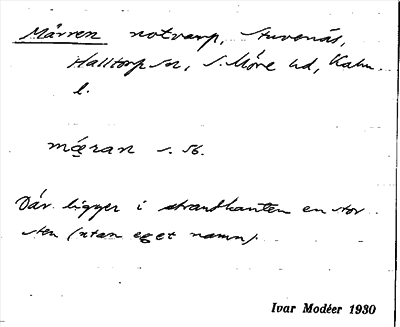 Märren notvarp, Stuvenäs,
Halltorp sn, S. Möre hd, Kalm.
l.
mǽran s. 56.
Där ligger i strandkanten en stor
sten (utan eget namn).
Ivar Modéer 1930